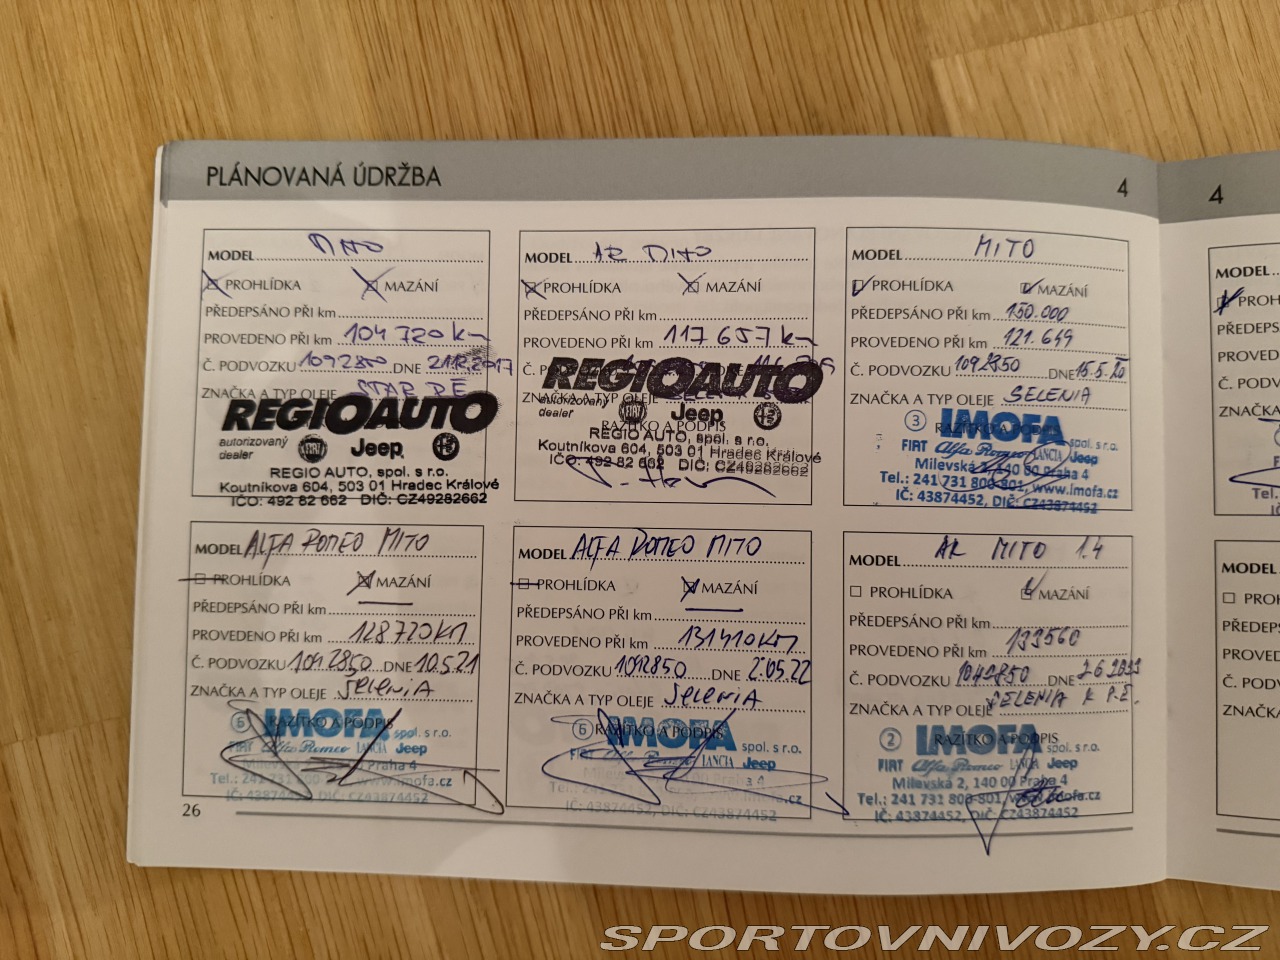 PLÁNOVANÁ ÚDRŽBA
4
MODEL MITO
PROHLÍDKA MAZÁNÍ
PŘEDEPSÁNO PŘI km
PROVEDENO PŘI km 104 720 km
Č. PODVOZKU 1092850 DNE 21.12.2017
ZNAČKA A TYP OLEJE
REGIOAUTO
autorizovaný
dealer
FIAT Jeep
REGIO AUTO, spol. s r.o.
Koutníkova 604, 503 01 Hradec Králové
IČO: 492 82 662 DIČ: CZ49282662
MODEL AR MITO
PROHLÍDKA MAZÁNÍ
PŘEDEPSÁNO PŘI km
PROVEDENO PŘI km 117 657 km
Č. PODVOZKU
ZNAČKA A TYP OLEJE
REGIOAUTO
autorizovaný
dealer
FIAT Jeep
RAZÍTKO A PODPIS
REGIO AUTO, spol. s r.o.
Koutníkova 604, 503 01 Hradec Králové
IČO: 492 82 662 DIČ: CZ49282662
MODEL MITO
PROHLÍDKA MAZÁNÍ
PŘEDEPSÁNO PŘI km 150.000
PROVEDENO PŘI km 121.649
Č. PODVOZKU 1092850 DNE 15.5.20
ZNAČKA A TYP OLEJE SELENIA
RAZÍTKO A PODPIS
3 IMOFA spol. s r.o.
FIAT Alfa Romeo LANCIA Jeep
Milevská 2, 140 00 Praha 4
Tel.: 241 731 800-801, www.imofa.cz
IČ: 43874452, DIČ: CZ43874452
MODEL ALFA ROMEO MITO
PROHLÍDKA MAZÁNÍ
PŘEDEPSÁNO PŘI km
PROVEDENO PŘI km 128720KM
Č. PODVOZKU 1092850 DNE 10.5.21
ZNAČKA A TYP OLEJE SELENIA
RAZÍTKO A PODPIS
6 IMOFA spol. s r.o.
FIAT Alfa Romeo LANCIA Jeep
Milevská 2, 140 00 Praha 4
Tel.: 241 731 800 www.imofa.cz
IČ: 43874452, DIČ: CZ43874452
MODEL ALFA ROMEO MITO
PROHLÍDKA MAZÁNÍ
PŘEDEPSÁNO PŘI km
PROVEDENO PŘI km 131410KM
Č. PODVOZKU 1092850 DNE 2.05.22
ZNAČKA A TYP OLEJE SELENIA
RAZÍTKO A PODPIS
6 IMOFA spol. s r.o.
FIAT LANCIA Jeep
IČ: 43874452, DIČ: CZ43874452
MODEL AR MITO 1.4
PROHLÍDKA MAZÁNÍ
PŘEDEPSÁNO PŘI km
PROVEDENO PŘI km 133560
Č. PODVOZKU 1092850 DNE
ZNAČKA A TYP OLEJE SELENIA K P.E.
RAZÍTKO A PODPIS
2 IMOFA spol. s r.o.
FIAT Alfa Romeo LANCIA Jeep
Milevská 2, 140 00 Praha 4
Tel.: 241 731 800-801, www.imofa.cz
IČ: 43874452, DIČ: CZ43874452
26
4
MODEL
PROH
PŘEDEPS
PROVED
Č. PODV
ZNAČKA
Tel.
IČ
MODEL
PROH
PŘEDEPS
PROVED
Č. PODV
ZNAČKA
SPORTOVNIVOZY.CZ